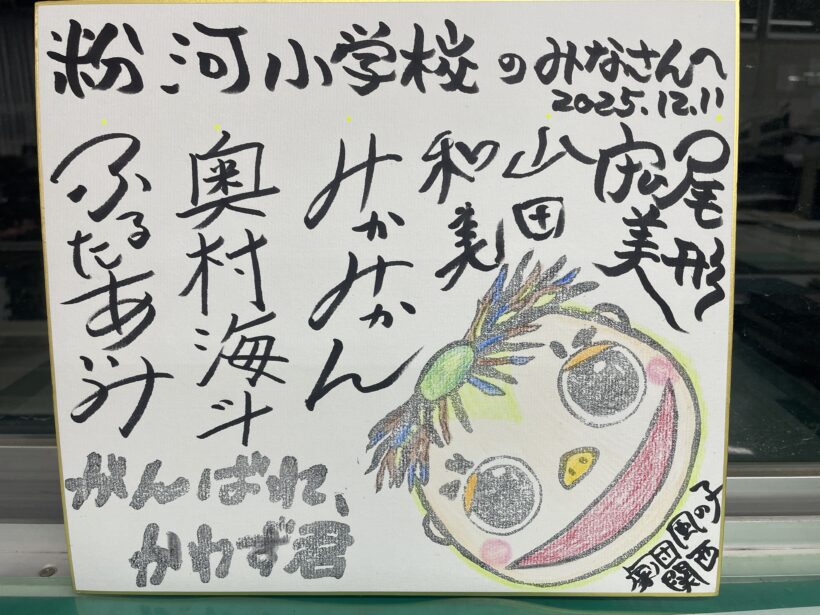 粉河小学校のみなさんへ
2025.12.11
尾形宏美
山田和美
みかみかん
奥村海斗
ふるたあみ
がんばれ、
かわず君
劇団風の子
関西